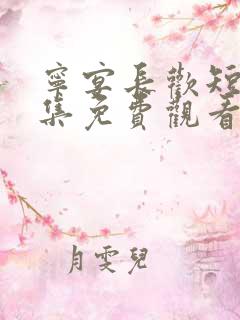 寧宴長歡短
集免費觀看
月雯兒